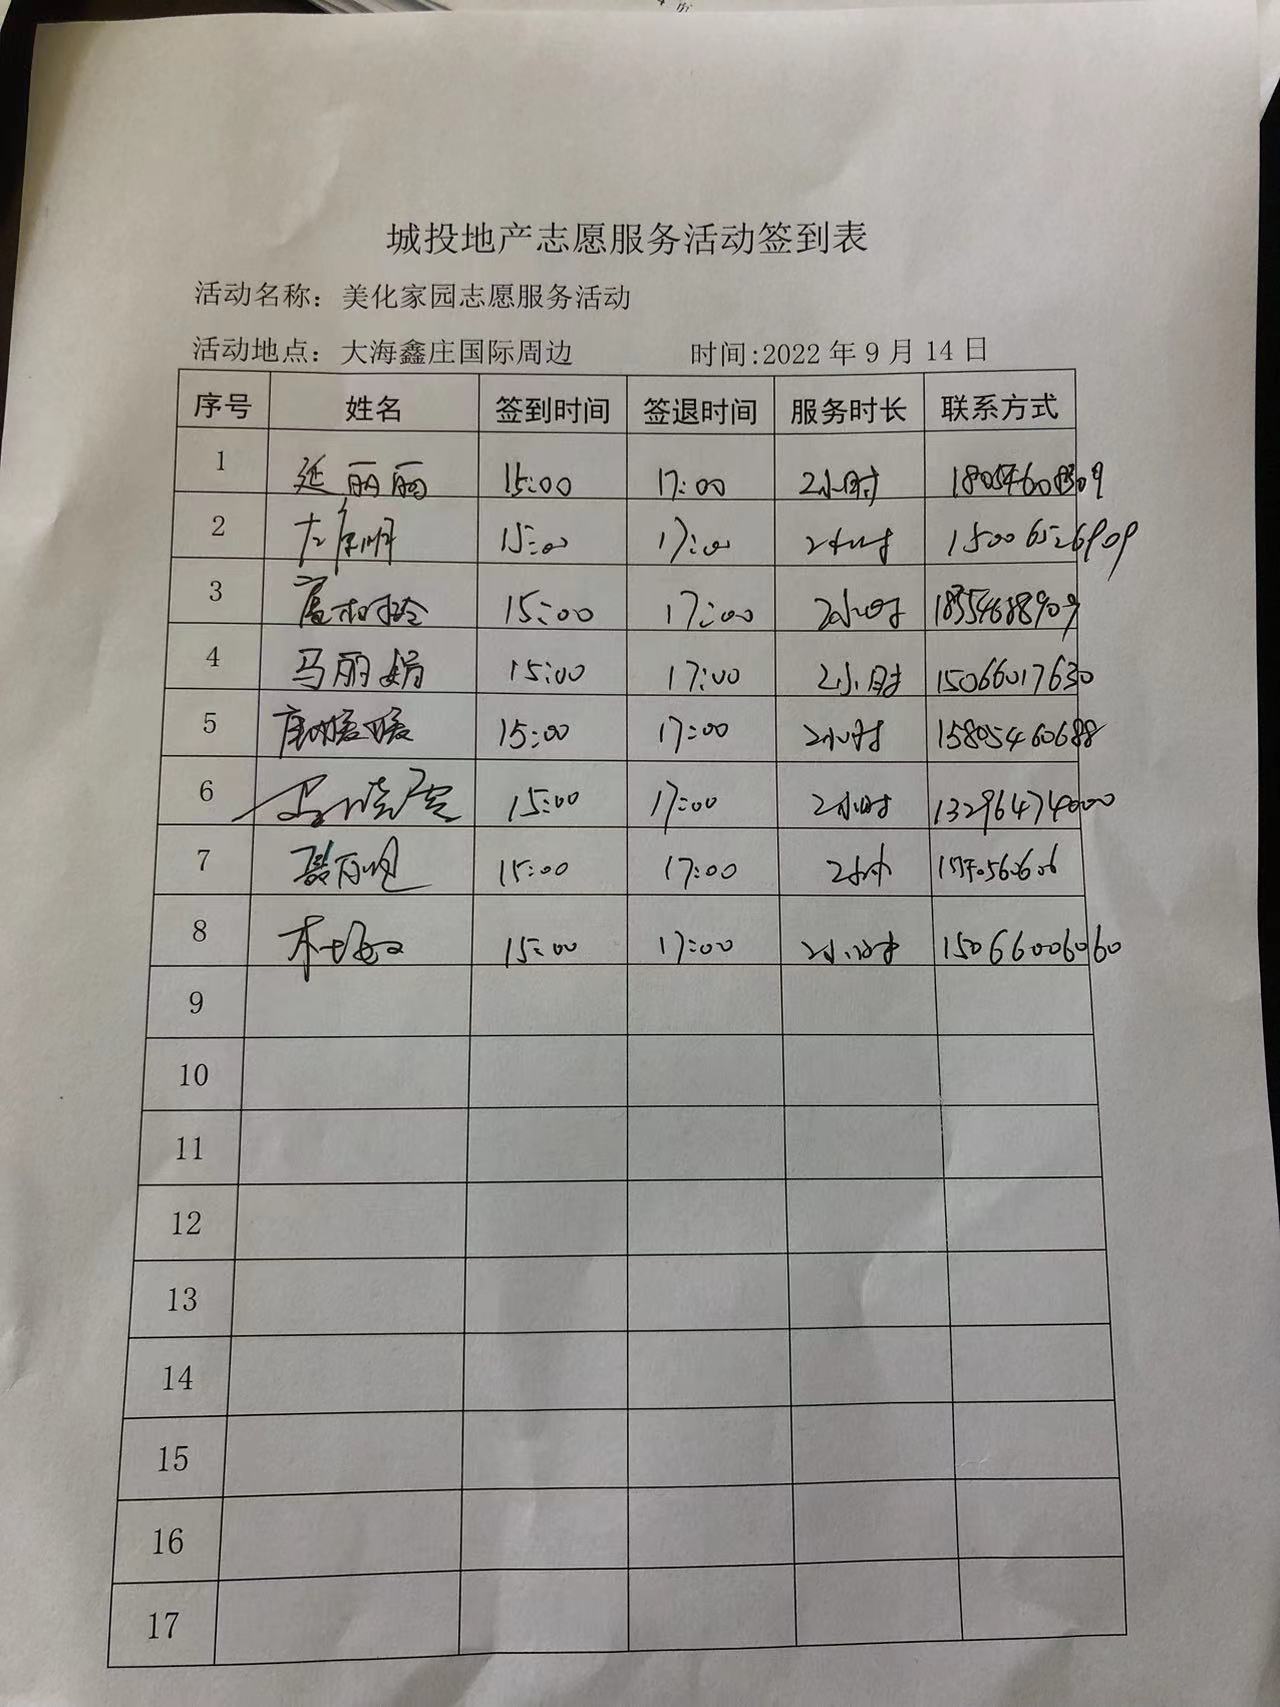 城投地产志愿服务活动签到表
活动名称：美化家园志愿服务活动
活动地点：大海鑫庄国际周边 时间:2022年9月14日
序号 姓名 签到时间 签退时间 服务时长 联系方式
1 延丽丽 15:00 17:00 2小时
2 15:00 17:00 2小时 15006526909
3 15:00 17:00 2小时 18354688909
4 马丽娟 15:00 17:00 2小时 15066017630
5 唐媛媛 15:00 17:00 2小时 15805460688
6 15:00 17:00 2小时 13296474000
7 15:00 17:00 2小时
8 15:00 17:00 2小时 15066006060
9
10
11
12
13
14
15
16
17